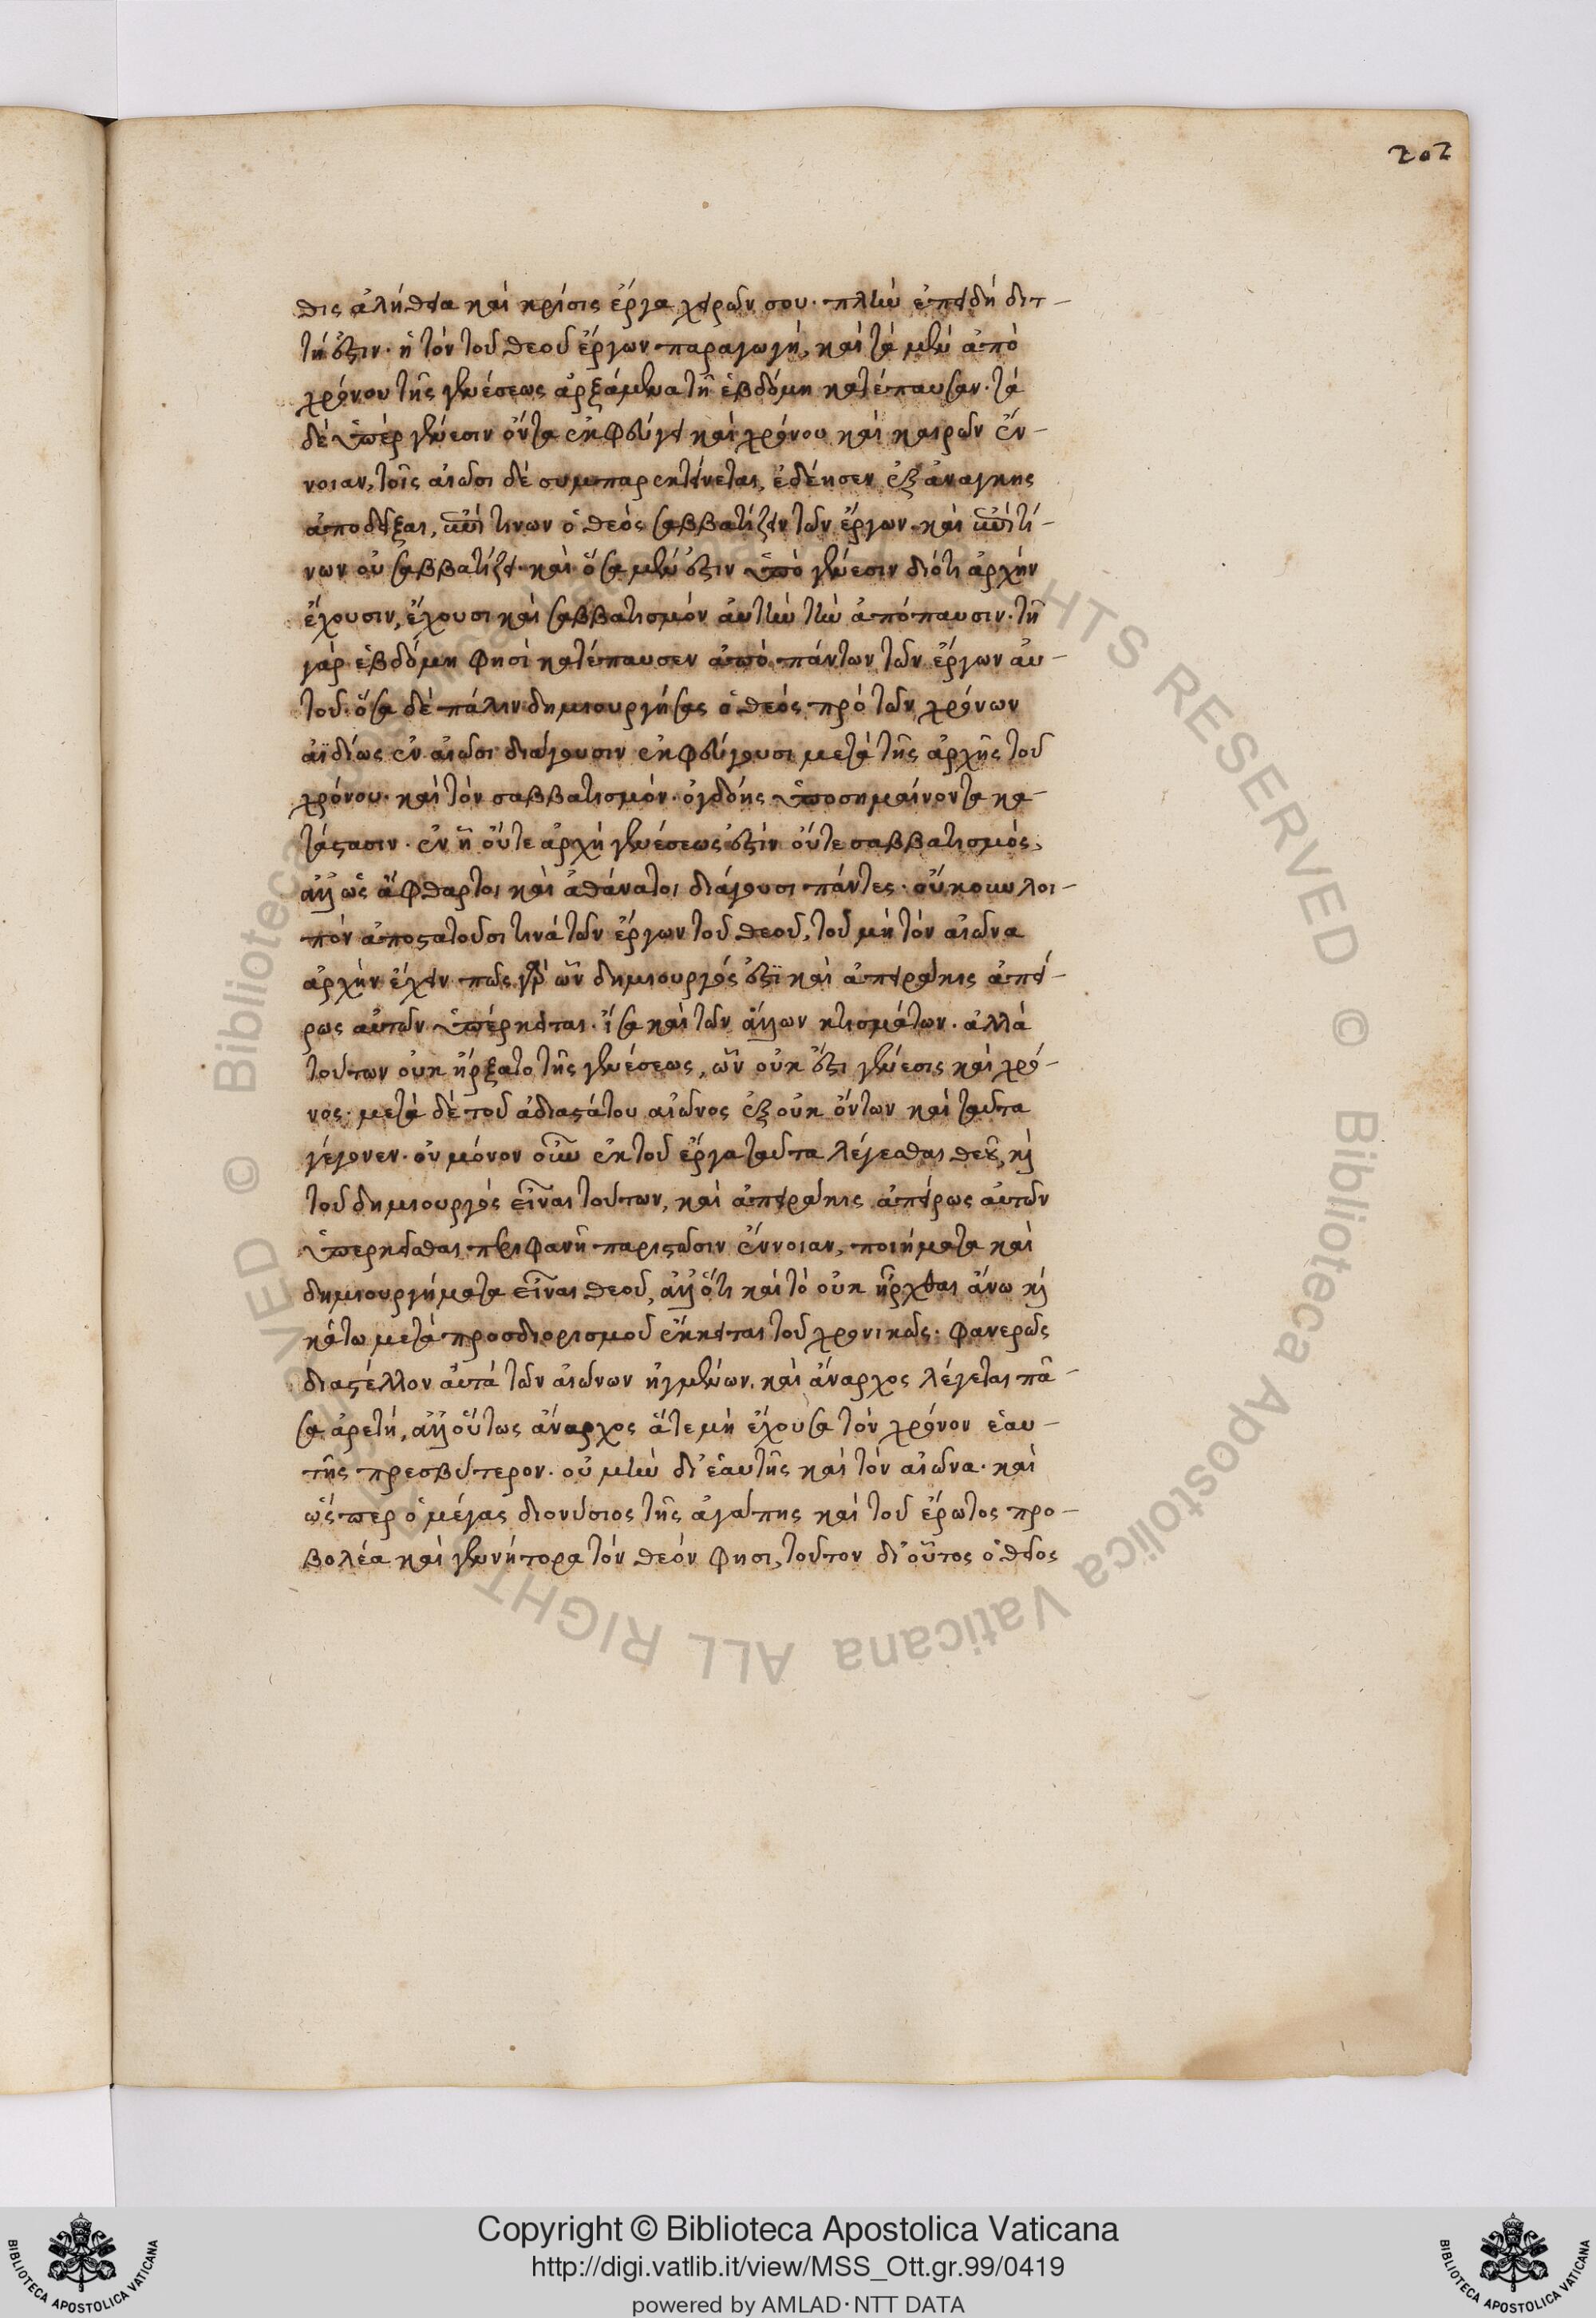 202
θις ἀλήθεια καὶ κρίσις ἔργα χειρῶν σου· πλὴν ἐπειδὴ διτ-
τή ἐστιν· ἡ τὸν τοῦ θεοῦ ἔργων παραγωγή, καὶ τὰ μὲν ἀπὸ
χρόνου τῆς γενέσεως ἀρξάμενα τῇ ἑβδόμῃ κατέπαυσαν· τὰ
δὲ ὑπὲρ γένεσιν ὄντα ἐκφεύγει καὶ χρόνου καὶ καιρῶν ἔν-
νοιαν, τοῖς αἰῶσι δὲ συμπαρεκτείνεται, ἐδέησεν ἐξ ἀνάγκης
ἀποδεῖξαι, ἐπὶ τίνων ὁ θεὸς σαββατίζειν τῶν ἔργων· καὶ ἐπὶ τί-
νων οὐ σαββατίζει· καὶ ὅσα μέν ἐστιν ὑπὸ γένεσιν διότι ἀρχὴν
ἔχουσιν, ἔχουσι καὶ σαββατισμὸν αὐτὴν τὴν ἀπόπαυσιν· τῇ
γὰρ ἑβδόμῃ φησὶ κατέπαυσεν ἀπὸ πάντων τῶν ἔργων αὐ-
τοῦ· ὅσα δὲ πάλιν δημιουργήσας ὁ θεὸς πρὸ τῶν χρόνων
ἀϊδίως ἐν αἰῶσι διάγουσιν ἐκφεύγουσι μετὰ τῆς ἀρχῆς τοῦ
χρόνου· καὶ τὸν σαββατισμόν· ὀγδόης ὑποσημαίνοντα κα-
τάστασιν· ἐν ᾗ οὔτε ἀρχὴ γενέσεώς ἐστιν οὔτε σαββατισμός,
ἀλλ' ὡς ἄφθαρτοι καὶ ἀθάνατοι διάγουσι πάντες· οὔκουν λοι-
πὸν ἀποστατοῦσι τινὰ τῶν ἔργων τοῦ θεοῦ, τοῦ μὴ τὸν αἰῶνα
ἀρχὴν ἔχειν· πῶς γὰρ ὧν δημιουργός ἐστι καὶ ἀπειράκις ἀπεί-
ρως αὐτῶν ὑπέρκειται· ἴσα καὶ τῶν ἄλλων κτισμάτων· ἀλλὰ
τούτων οὐκ ἤρξατο τῆς γενέσεως, ὧν οὐκ ἔστι γένεσις καὶ χρό-
νος· μετὰ δὲ τοῦ ἀδιαστάτου αἰῶνος ἐξ οὐκ ὄντων καὶ ταῦτα
γέγονεν· οὐ μόνον οὖν ἐκ τοῦ ἔργα ταῦτα λέγεσθαι θεοῦ, κὶ
τοῦ δημιουργός εἶναι τούτων, καὶ ἀπειράκις ἀπείρως αὐτῶν
ὑπερκεῖσθαι περιφανῆ παριστῶσιν ἔννοιαν, ποιήματα καὶ
δημιουργήματα εἶναι θεοῦ, ἀλλ' ὅτι καὶ τὸ οὐκ ἦρχθαι ἄνω κὶ
κάτω μετὰ προσδιορισμοῦ ἔκκειται τοῦ χρονικῶς· φανερῶς
διαστέλλον αὐτὰ τῶν αἰώνων ἠγμένων, καὶ ἄναρχος λέγεται πᾶ-
σα ἀρετή, ἀλλ' οὕτως ἄναρχος ἅτε μὴ ἔχουσα τὸν χρόνον ἑαυ-
τῆς πρεσβύτερον· οὐ μὴν δι' ἑαυτῆς καὶ τὸν αἰῶνα· καὶ
ὥσπερ ὁ μέγας διονύσιος τῆς ἀγάπης καὶ τοῦ ἔρωτος προ-
βολέα καὶ γεννήτορα τὸν θεόν φησι, τοῦτον δ' οὗτος ὁ θεῖος
Copyright © Biblioteca Apostolica Vaticana
http://digi.vatlib.it/view/MSS_Ott.gr.99/0419
powered by AMLAD·NTT DATA
BIBLIOTECA APOSTOLICA VATICANA
BIBLIOTECA APOSTOLICA VATICANA